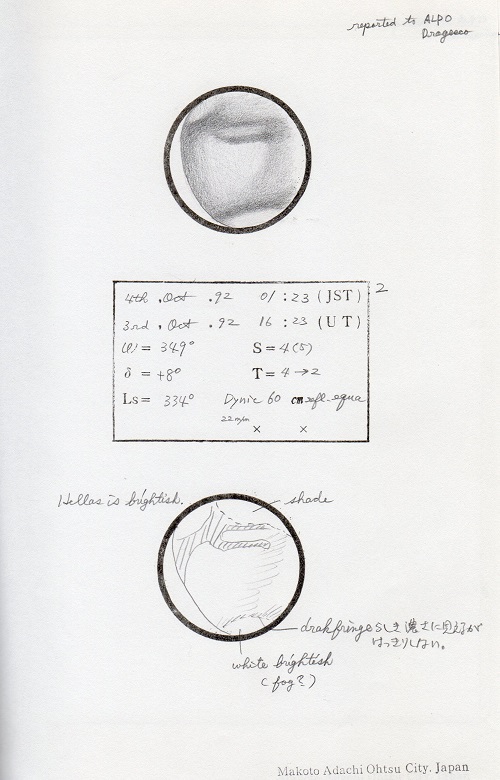 reported to ALPO
Dragesco
2
4th . Oct . 92 01 : 23 (JST)
3rd . Oct . 92 16 : 23 (UT)
ω = 349° S = 4(5)
δ = +8° T = 4 → 2
Ls = 334° Dynic 60 cm refl. equa
22 m/m
× ×
Hellas is brightish.
shade
drak fringe らしき濃さに見えるが
はっきりしない。
white brightish
(fog?)
Makoto Adachi Ohtsu City. Japan